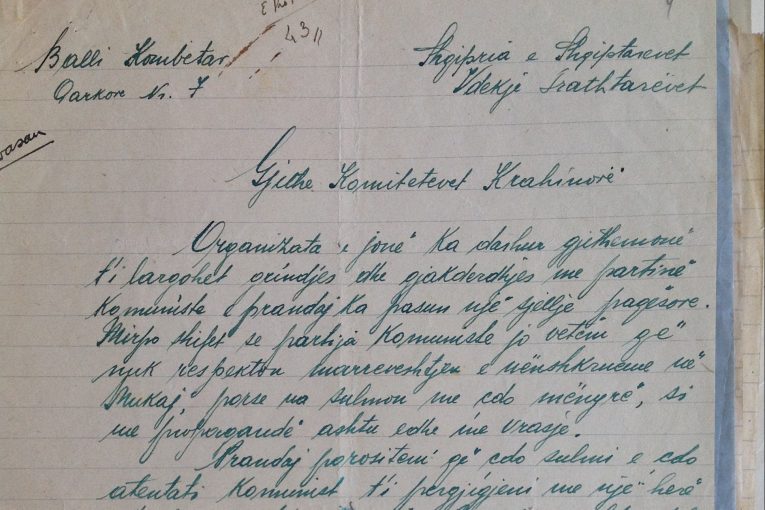 4311
Balli Kombëtar
Qarkore Nr. 7
Shqipria e Shqiptarëvet
Vdekje Tradhtarëvet
Gjithë Komitetevet Krahinorë
Organizata e jonë ka dashur gjithëmonë
t'i largohet grindjes dhe gjakderdhjes me partinë
Komuniste e prandaj ka pasun një sjellje paqësore.
Mirpo shifet se partija Komuniste jo vetëm që
nuk respekton marrevështjen e nënshkrueme në
Mukaj, porse na sulmon me cdo mënyrë, si
me propagandë ashtu edhe me vrasje.
Prandaj porositeni që cdo sulmi e cdo
atentati Komunist t'i pergjigjeni me një herë